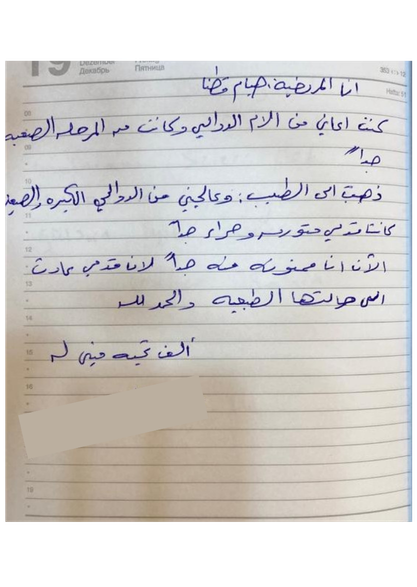 19
Dezember
Декабрь
Пятница
انا المريضة، هيام قطنا
كنت اعاني من الام الدوالي وكانت من المرحله الصعبه
جداً
ذهبت الى الطبيب، وعالجني من الدوالي الكبيره والصعبه
كانت قدمي متورمه وحمراء جداً
الأن انا ممنونه منه جداً لان قدمي عادت
الى حالتها الطبعيه والحمد لله
ألف تحيه مني له